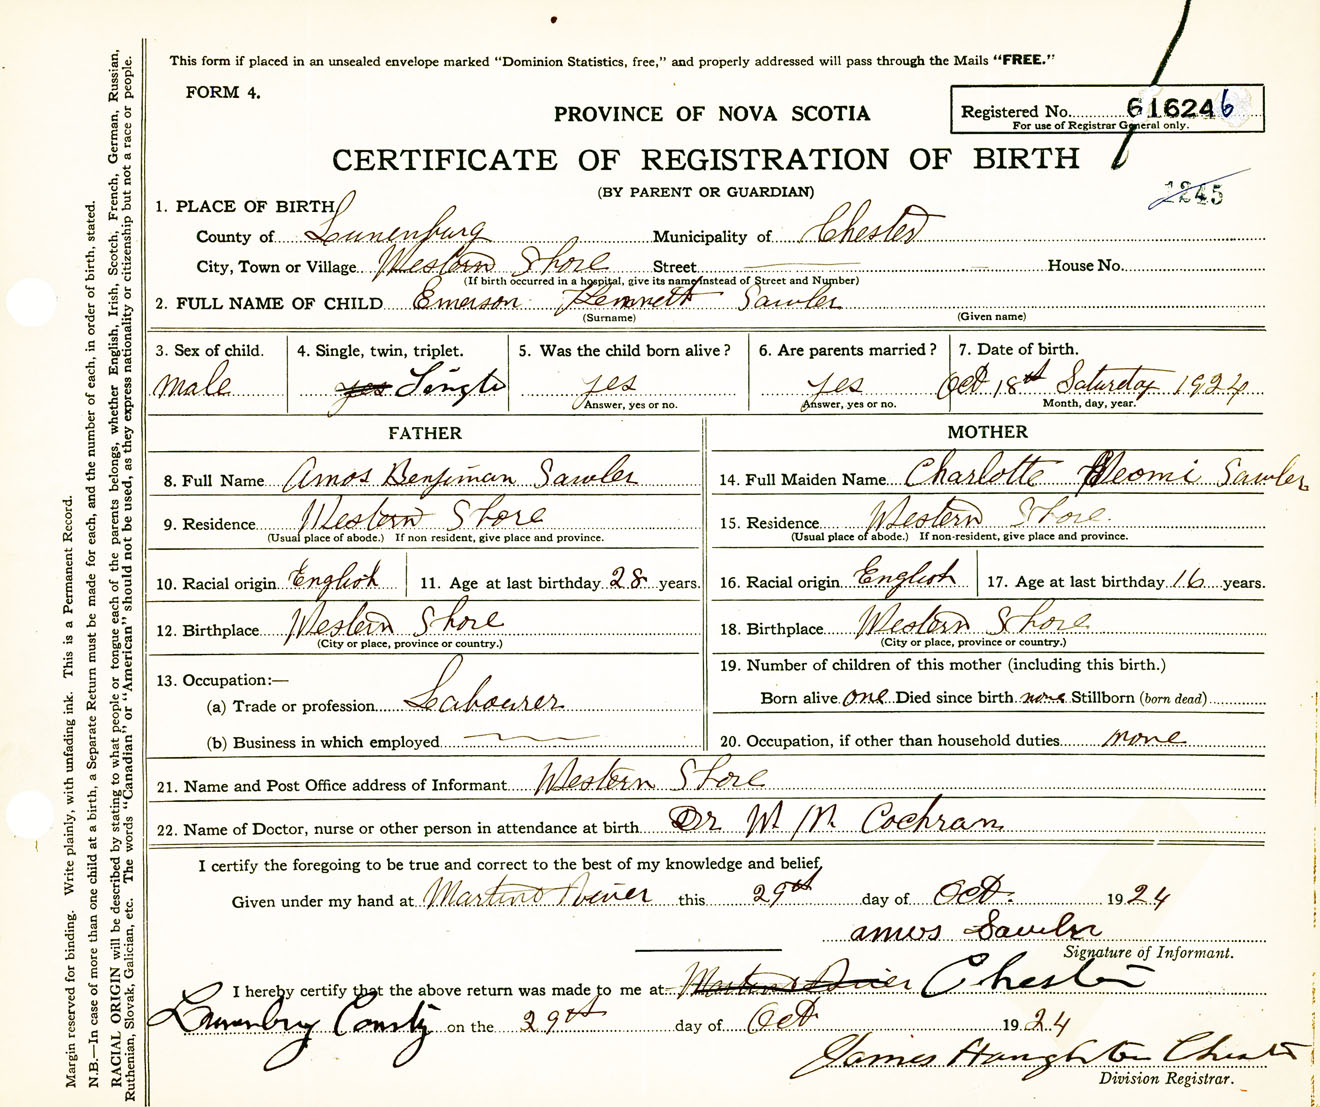 This form if placed in an unsealed envelope marked "Dominion Statistics, free," and properly addressed will pass through the Mails "FREE."
FORM 4.
PROVINCE OF NOVA SCOTIA
Registered No. 616246
For use of Registrar General only.
CERTIFICATE OF REGISTRATION OF BIRTH
(BY PARENT OR GUARDIAN)
1245
1. PLACE OF BIRTH
County of Lunenburg Municipality of Chester
City, Town or Village Western Shore Street House No.
(If birth occurred in a hospital, give its name instead of Street and Number)
2. FULL NAME OF CHILD Emerson Kenneth Sawler
(Surname) (Given name)
3. Sex of child. 4. Single, twin, triplet. 5. Was the child born alive? 6. Are parents married? 7. Date of birth.
Male yes Single yes yes Oct 18th Saturday 1924
Answer, yes or no. Answer, yes or no. Month, day, year.
FATHER MOTHER
8. Full Name Amos Benjiman Sawler 14. Full Maiden Name Charlotte Neomi Sawler
9. Residence Western Shore 15. Residence Western Shore.
(Usual place of abode.) If non resident, give place and province. (Usual place of abode.) If non-resident, give place and province.
10. Racial origin English 11. Age at last birthday 28 years. 16. Racial origin English 17. Age at last birthday 16 years.
12. Birthplace Western Shore 18. Birthplace Western Shore
(City or place, province or country.) (City or place, province or country.)
13. Occupation:— 19. Number of children of this mother (including this birth.)
(a) Trade or profession Labourer Born alive one Died since birth none Stillborn (born dead)
(b) Business in which employed 20. Occupation, if other than household duties none
21. Name and Post Office address of Informant Western Shore
22. Name of Doctor, nurse or other person in attendance at birth Dr W. N. Cochran
I certify the foregoing to be true and correct to the best of my knowledge and belief,
Given under my hand at Martins River this 29th day of Oct. 1924
Amos Sawler
Signature of Informant.
I hereby certify that the above return was made to me at Martins River Chester
Lunenbrg County on the 29th day of Oct 1924
James Haughton Chester
Division Registrar.
Margin reserved for binding. Write plainly, with unfading ink. This is a Permanent Record.
N.B.—In case of more than one child at a birth, a Separate Return must be made for each, and the number of each, in order of birth, stated.
RACIAL ORIGIN will be described by stating to what people or tongue each of the parents belongs, whether English, Irish, Scotch, French, German, Russian,
Ruthenian, Slovak, Galician, etc. The words "Canadian" or "American" should not be used, as they express nationality or citizenship but not a race or people.